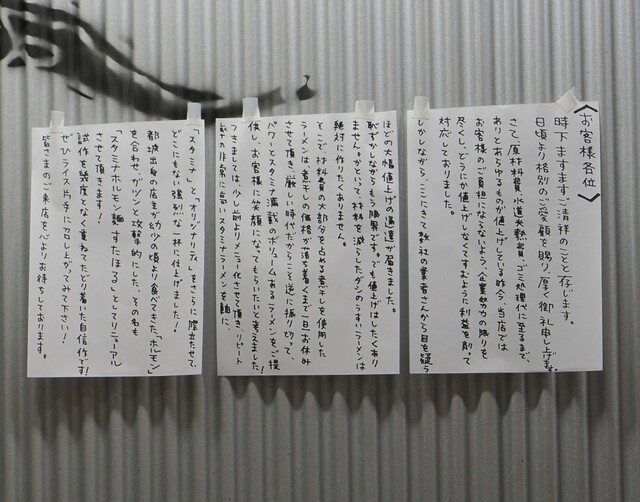 〈お客様各位〉
時下ますますご清祥のことと存じます。
日頃より格別のご愛顧を賜り、厚く御礼申し上げます。
さて、原材料費、水道光熱費、ゴミ処理代に至るまで、
ありとあらゆるものが値上げしている昨今、当店では
お客様のご負担にならないよう、企業努力の限りを
尽くし、どうにか値上げしなくてすむように利益を削って
対応しておりました。
しかしながら、ここにきて数社の業者さんから目を疑う
ほどの大幅値上げの通達が届きました。
恥ずかしながらもう限界です。でも値上げはしたくあり
ません。かといって材料を減らしたダシのうすいラーメンは
絶対に作りたくありません。
そこで材料費の大部分を占める煮干しを使用した
ラーメンは煮干しの価格が落ち着くまで一旦お休み
させて頂き、厳しい時代だからこそ逆に振り切って、
パワーとスタミナ満載のボリュームあるラーメンをご提
供し、お客様に笑顔になってもらいたいと考えました!
つきましては、少し前よりメニュー化させて頂き、リピート
率の非常に高いスタミナラーメンを軸に、
「スタミナ」と「オリジナリティ」をさらに際立たせて、
どこにもない強烈な一杯に仕上げました!
都城出身の店主が幼少の頃より食べてきた、"ホルモン"
を合わせ、ガツンと攻撃的にした、その名も
「スタミナホルモン麺すたほる」としてリニューアル
させて頂きます!
試作を幾度となく重ねてたどり着いた自信作です!
ぜひライス片手に召し上がってみて下さい!
皆さまのご来店を心よりお待ちしております。